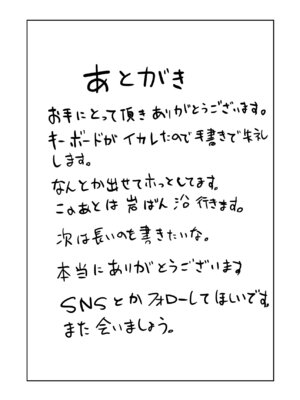 あとがき
お手にとって頂きありがとうございます。
キーボードがイカレたので手書きで失礼
します。
なんとか出せてホッとしてます。
このあとは岩ばん浴行きます。
次は長いのを書きたいな。
本当にありがとうございます
SNSとかフォローしてほしいです。
また会いましょう。